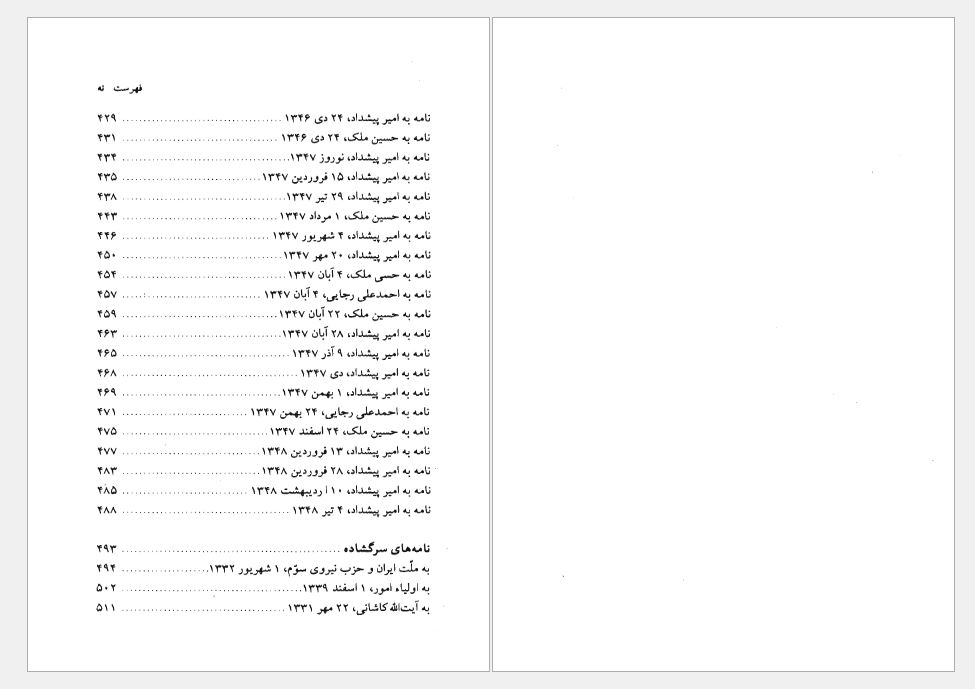 فهرست نه
نامه به امیر پیشداد، ۲۴ دی ۱۳۴۶ ........................................ ۴۲۹
نامه به حسین ملک، ۲۴ دی ۱۳۴۶ ........................................ ۴۳۱
نامه به امیر پیشداد، نوروز ۱۳۴۷ ........................................ ۴۳۴
نامه به امیر پیشداد، ۱۵ فروردین ۱۳۴۷ ................................... ۴۳۵
نامه به امیر پیشداد، ۲۹ تیر ۱۳۴۷ ........................................ ۴۳۸
نامه به حسین ملک، ۱ مرداد ۱۳۴۷ ....................................... ۴۴۳
نامه به امیر پیشداد، ۴ شهریور ۱۳۴۷ ..................................... ۴۴۶
نامه به امیر پیشداد، ۲۰ مهر ۱۳۴۷ ........................................ ۴۵۰
نامه به حسی ملک، ۴ آبان ۱۳۴۷ ......................................... ۴۵۴
نامه به احمدعلی رجایی، ۴ آبان ۱۳۴۷ ................................... ۴۵۷
نامه به حسین ملک، ۲۲ آبان ۱۳۴۷ ....................................... ۴۵۹
نامه به امیر پیشداد، ۲۸ آبان ۱۳۴۷ ........................................ ۴۶۳
نامه به امیر پیشداد، ۹ آذر ۱۳۴۷ .......................................... ۴۶۵
نامه به امیر پیشداد، دی ۱۳۴۷ ............................................ ۴۶۸
نامه به امیر پیشداد، ۱ بهمن ۱۳۴۷ ........................................ ۴۶۹
نامه به احمدعلی رجایی، ۲۴ بهمن ۱۳۴۷ ................................ ۴۷۱
نامه به حسین ملک، ۲۴ اسفند ۱۳۴۷ ..................................... ۴۷۵
نامه به امیر پیشداد، ۱۳ فروردین ۱۳۴۸ ................................... ۴۷۷
نامه به امیر پیشداد، ۲۸ فروردین ۱۳۴۸ ................................... ۴۸۳
نامه به امیر پیشداد، ۱۰ اردیبهشت ۱۳۴۸ ................................ ۴۸۵
نامه به امیر پیشداد، ۴ تیر ۱۳۴۸ .......................................... ۴۸۸
نامه‌های سرگشاده ....................................................... ۴۹۳
به ملّت ایران و حزب نیروی سوّم، ۱ شهریور ۱۳۳۲ ...................... ۴۹۴
به اولیاء امور، ۱ اسفند ۱۳۳۹ ............................................. ۵۰۲
به آیت‌الله کاشانی، ۲۲ مهر ۱۳۳۱ ......................................... ۵۱۱